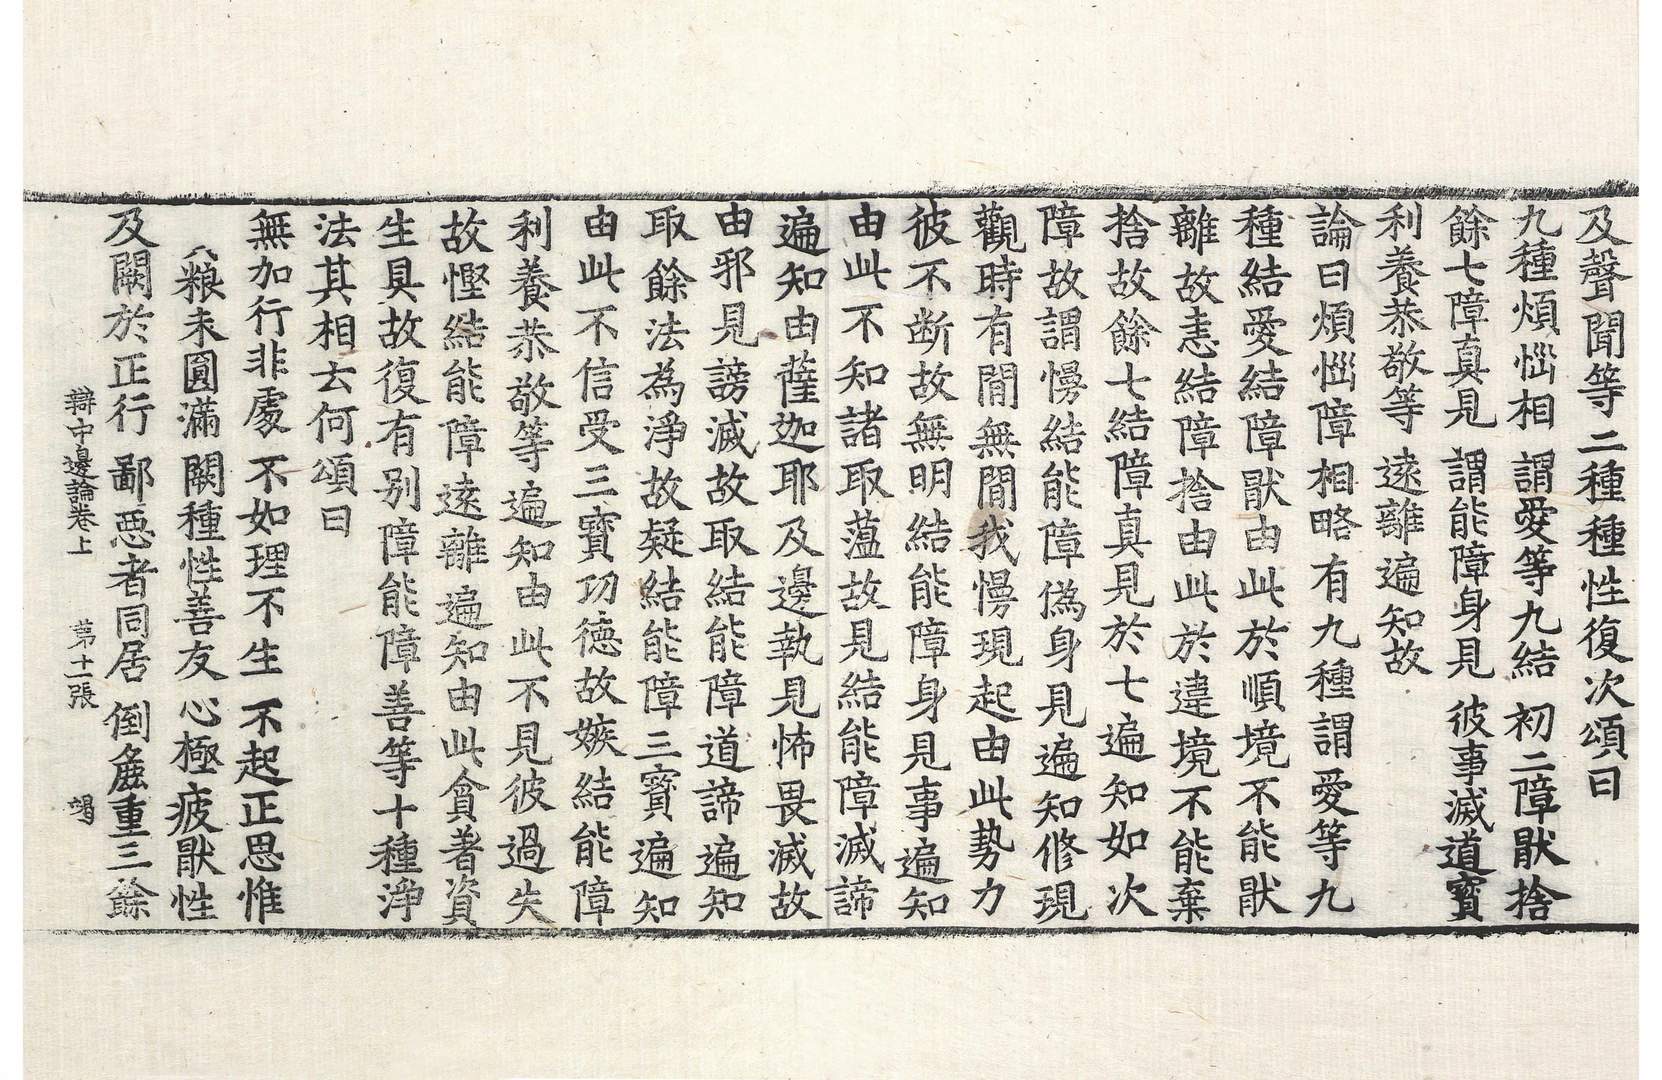 及聲聞等二種種性復次頌曰
九種煩惱相 謂愛等九結 初二障猒捨
餘七障真見 謂能障身見 彼事滅道寶
利養恭敬等 遠離遍知故
論曰煩惱障相略有九種謂愛等九
種結愛結障猒由此於順境不能猒
離故恚結障捨由此於違境不能棄
捨故餘七結障真見於七遍知如次
障故謂慢結能障偽身見遍知修現
觀時有間無間我慢現起由此勢力
彼不断故無明結能障身見事遍知
由此不知諸取蘊故見結能障滅諦
遍知由薩迦耶及邊執見怖畏滅故
由邪見謗滅故取結能障道諦遍知
取餘法為淨故疑結能障三寶遍知
由此不信受三寶功德故嫉結能障
利養恭敬等遍知由此不見彼過失
故慳結能障遠離遍知由此貪著資
生具故復有别障能障善等十種淨
法其相云何頌曰
無加行非處 不如理不生 不起正思惟
資粮未圓滿 闕種性善友 心極疲猒性
及闕於正行 鄙惡者同居 倒麁重三餘
辯中邊論卷上 第十一張 竭